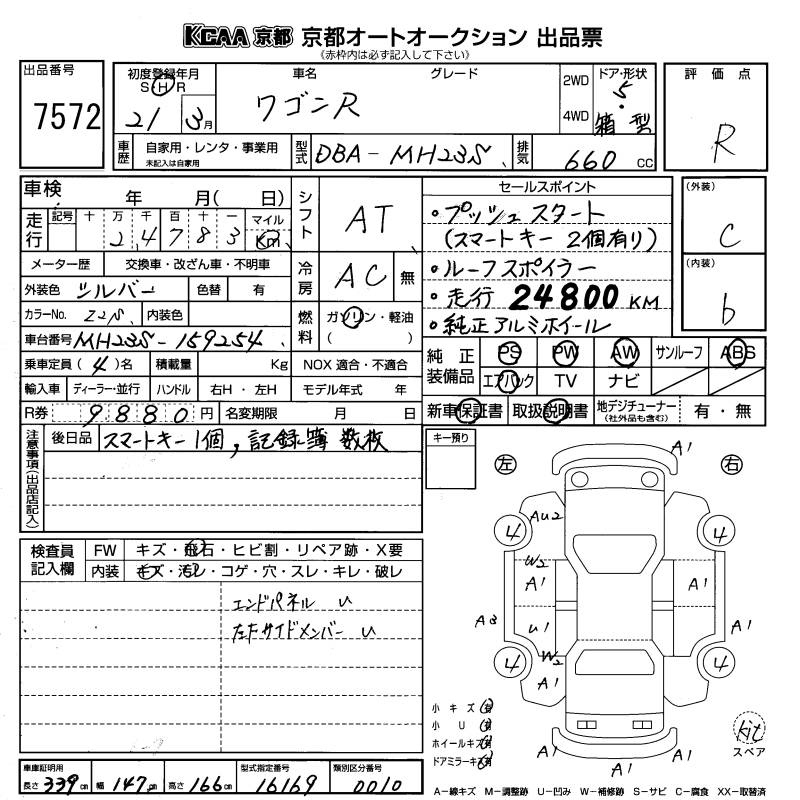 KCAA 京都 京都オートオークション 出品票
《赤枠内は必ず記入して下さい》
出品番号
7572
初度登録年月
S H R
21 3月
車名
ワゴンR
グレード
2WD
4WD
ドア・形状
5
箱 型
評価点
R
車歴
自家用・レンタ・事業用
未記入は自家用
型式
DBA-MH23S
排気
660 CC
車検
年 月( 日)
走行
記号 十 万 千 百 十 一 マイル
2 4 7 8 3 Km
シフト
AT
セールスポイント
・プッシュスタート
(スマートキー 2個有り)
・ルーフスポイラー
・走行 24800 KM
・純正アルミホイール
(外装)
C
(内装)
b
メーター歴 交換車・改ざん車・不明車
冷房
AC 無
外装色 シルバー 色替 有
カラーNo. Z2S 内装色
燃料
ガソリン・軽油
( )
車台番号 MH23S-159254
乗車定員 (4)名 積載量 Kg NOX 適合・不適合
輸入車 ディーラー・並行 ハンドル 右H・左H モデル年式 年
純正装備品
PS PW AW サンルーフ ABS
エアバック TV ナビ
R券 9880円 名変期限 月 日
新車保証書 取扱説明書 地デジチューナー
(社外品も含む) 有・無
注意事項(出品店記入)
後日品 スマートキー1個, 記録簿 数枚
キー預り
検査員記入欄
FW キズ・飛石・ヒビ割・リペア跡・X要
内装 キズ・汚レ・コゲ・穴・スレ・キレ・破レ
エンドパネル U
左Fサイドメンバー U
左 右
A1
AU2
4 4
W2
A1 A1
A3 U1 A1
W2
4 4
A1
A1 A1 A1
小キズ(有)
小U(有)
ホイールキズ(有)
ドアミラーキズ(有)
kit
スペア
車庫証明用
長さ 339cm 幅 147cm 高さ 166cm
型式指定番号
16169
類別区分番号
0010
A―線キズ M―調整跡 U―凹み W―補修跡 S―サビ C―腐食 XX―取替済